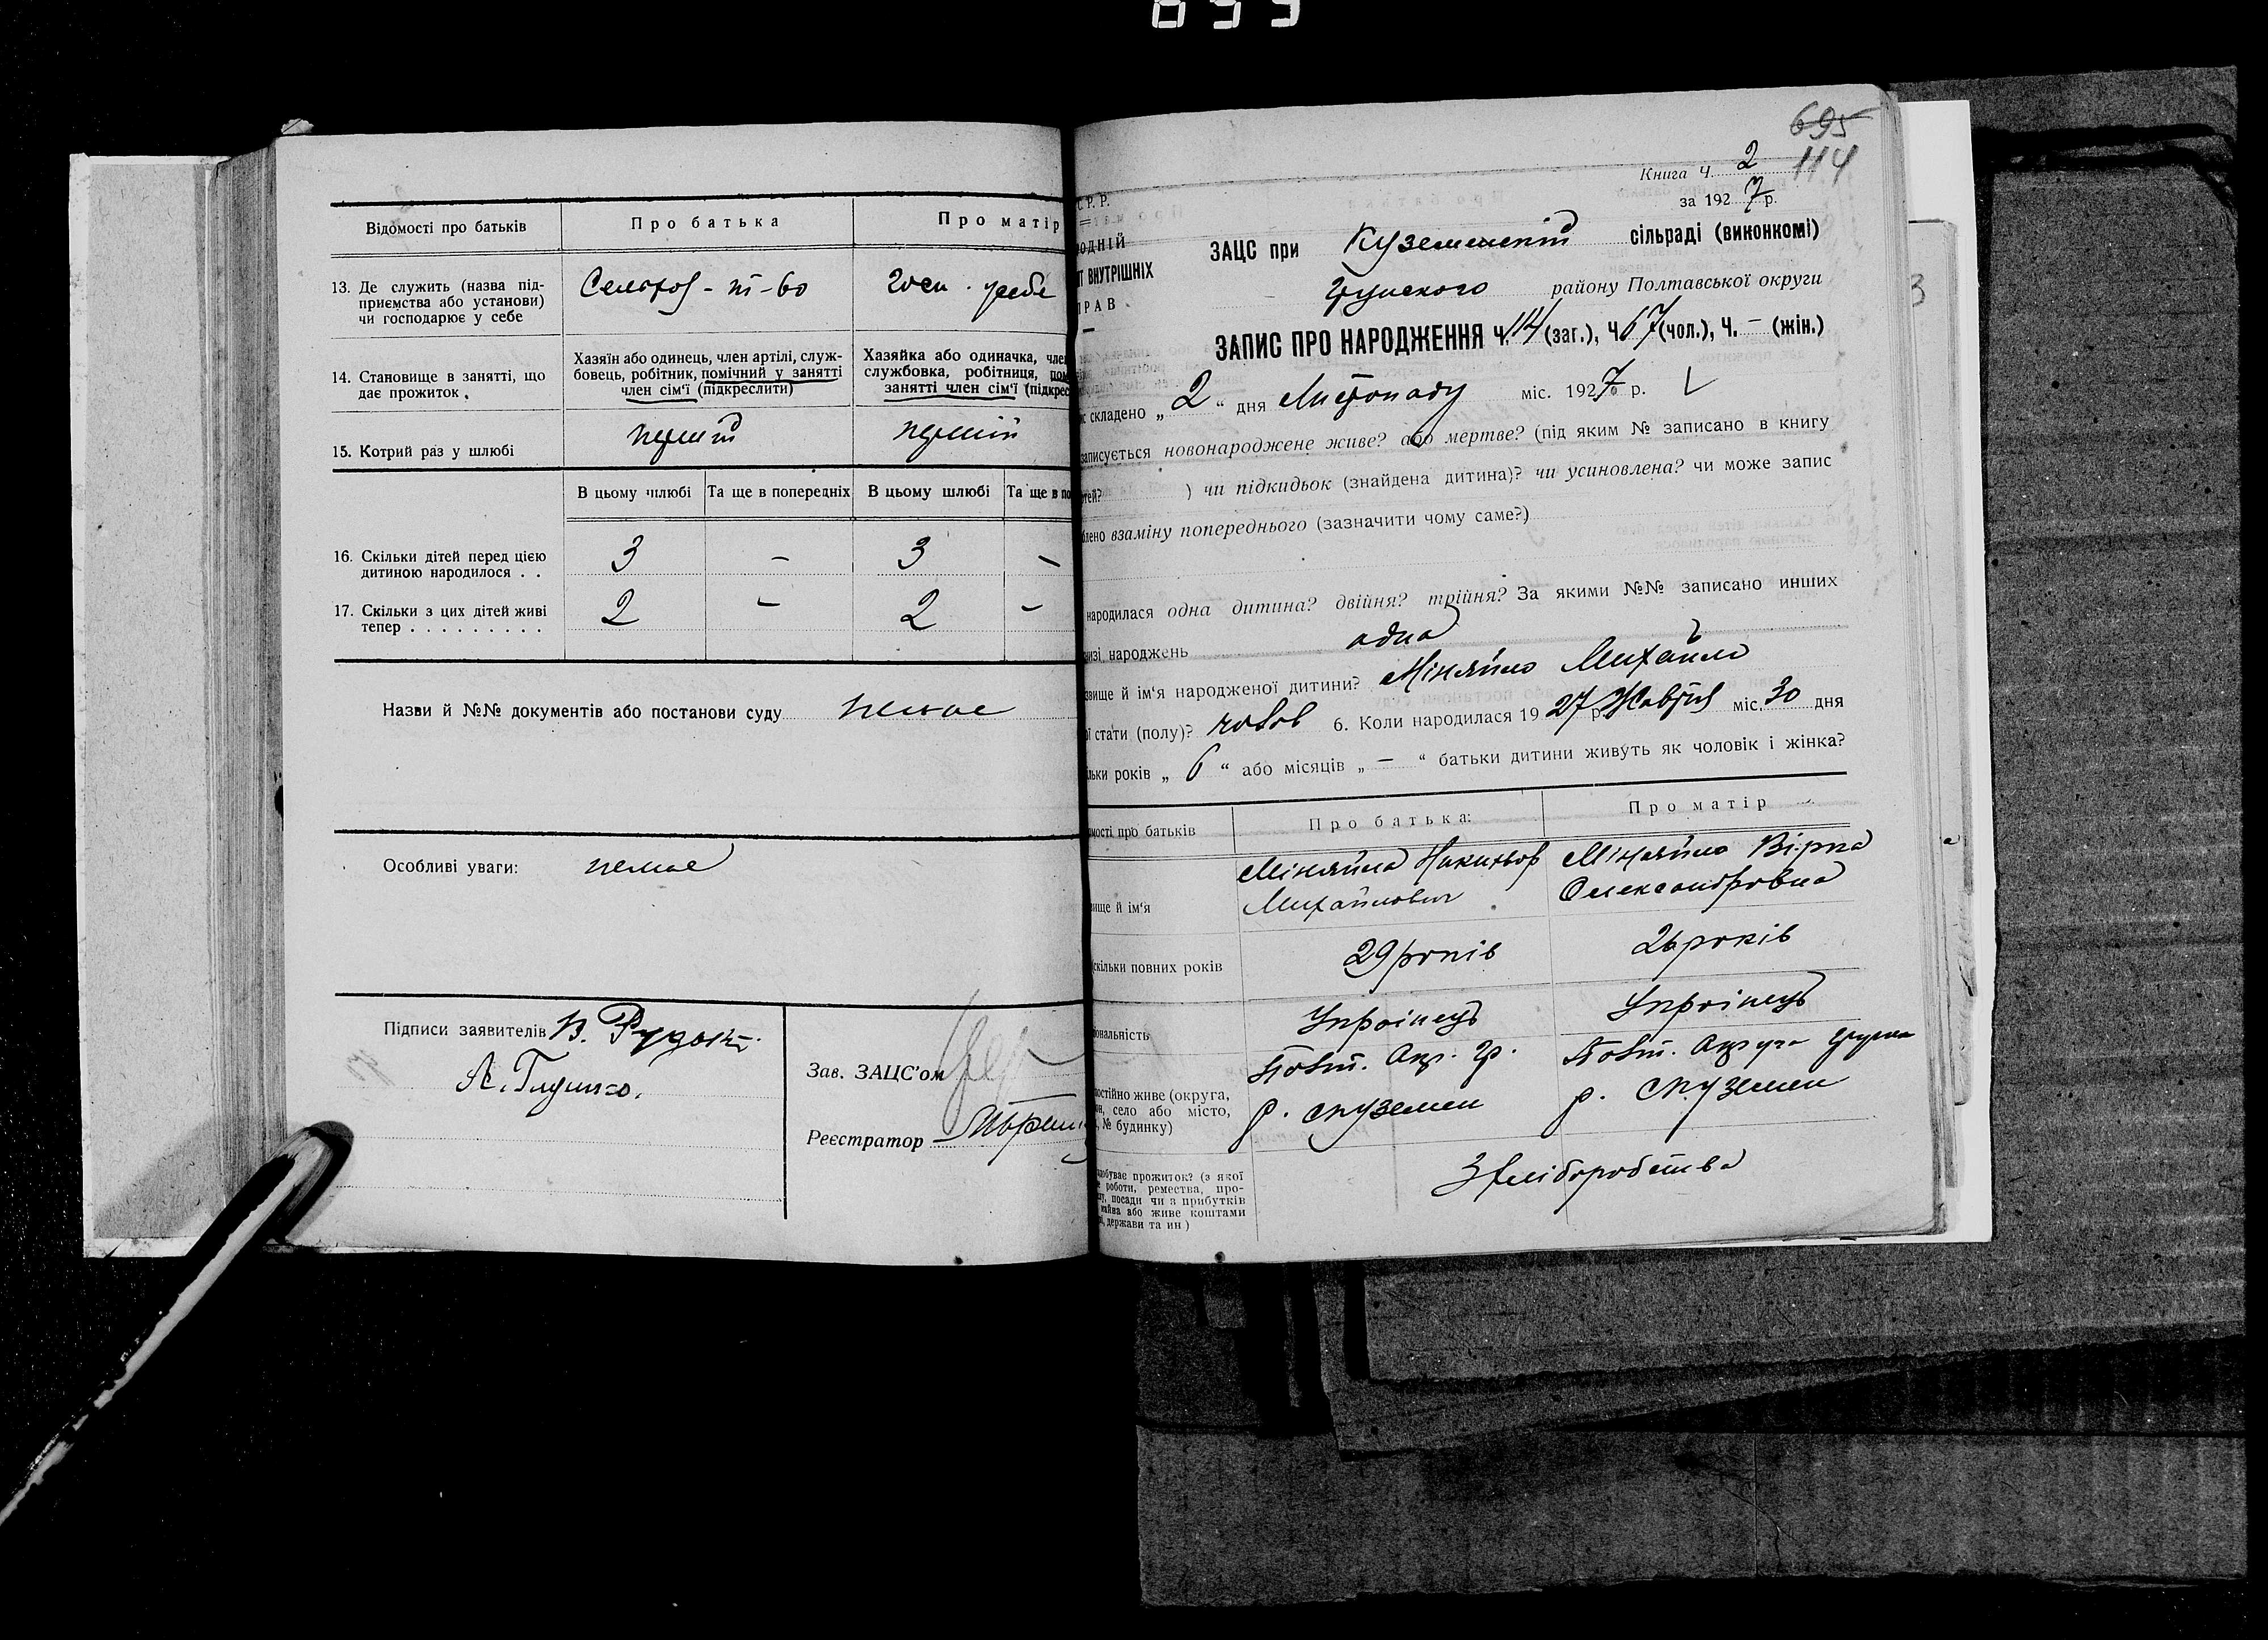 Відомості про батьків
Про батька
Про матір
13. Де служить (назва під-
приємства або установи)
чи господарює у себе
14. Становище в занятті, що
дає прожиток.
Хазяїн або одинець, член артілі, служ-
бовець, робітник, помічний у занятті
член сім'ї (підкреслити)
Хазяйка або одиначка, член
службовка, робітниця, пом
занятті член сім'ї (підкрес
15. Котрий раз у шлюбі
перший
перший
В цьому шлюбі
Та ще в попередніх
В цьому шлюбі
Та ще в по
16. Скільки дітей перед цією
дитиною народилося . .
3 - 3 -
17. Скільки з цих дітей живі
тепер . . . . . . . . .
2 - 2 -
Назви й №№ документів або постанови суду немає
Особливі уваги: немає
Підписи заявителів
Зав. ЗАЦС'ом
Реєстратор
695
114
Книга Ч. 2
за 1927 р.
С.Р.Р.
ОДНІЙ
Т ВНУТРІШНІХ
ПРАВ
ЗАЦС при Куземській сільраді (виконкомі)
Грунского району Полтавської округи
ЗАПИС ПРО НАРОДЖЕННЯ Ч. 114 (заг.), Ч. 67 (чол.), Ч. - (жін.)
складено „ 2 “ дня Листопаду міс. 1927 р.
записується новонароджене живе? або мертве? (під яким № записано в книгу
ртей? ) чи підкидьок (знайдена дитина)? чи усиновлена? чи може запис
блено взаміну попереднього (зазначити чому саме?)
народилася одна дитина? двійня? трійня? За якими №№ записано инших
низі народжень одна
звище й ім'я народженої дитини? Міняйло Михайло
ої стати (полу)? чолов 6. Коли народилася 1927 р. Жовтня міс. 30 дня
льки років „ 6 “ або місяців „ - “ батьки дитини живуть як чоловік і жінка?
мості про батьків
Про батька:
Про матір
вище й ім'я
Міняйло Никифор
Михайлович
Міняйло Вірка
Олександровна
скільки повних років
29 років
26 років
іональність
Українець
Українець
постійно живе (округа,
он, село або місто,
, № будинку)
Полт. Окр. Гр.
р. с. Куземен
Полт. Округа Грунсь
р. с. Куземен
здобуває прожиток? (з якої
роботи, ремества, про-
, посади чи з прибутків
майна або живе коштами
, держави та ин)
З хліборобства